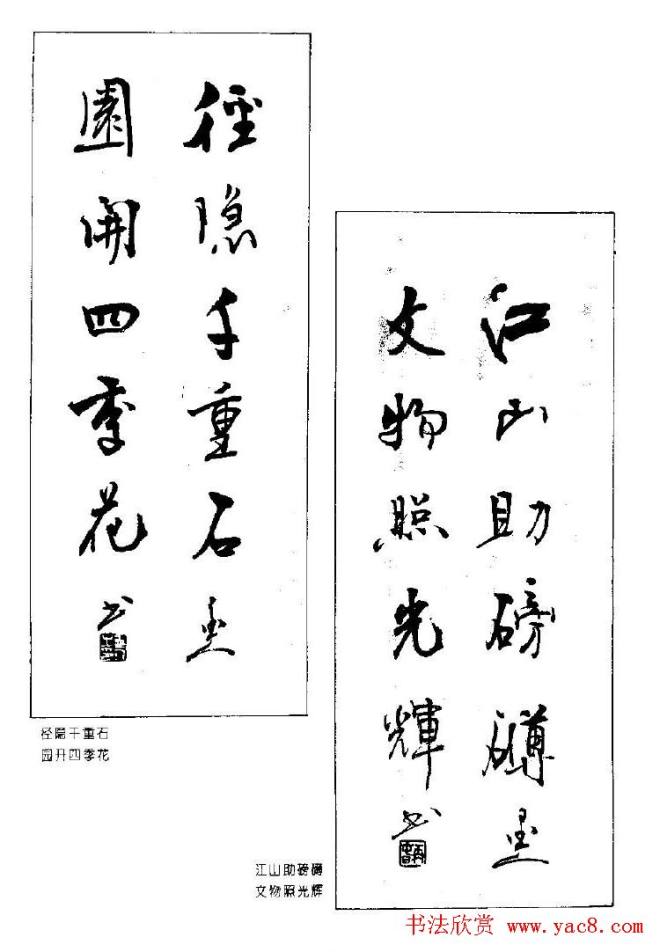 徑隐千重石
園開四季花
径隐千重石
园开四季花
江山助磅礴
文物照光輝
江山助磅礴
文物照光辉
书法欣赏 www.yac8.com